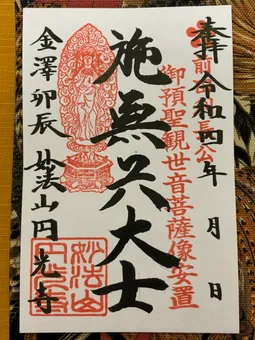 奉拝 令和四年 月 日
御預聖観世音菩薩像安置
施無畏大士
金澤卯辰 妙法山円光寺
妙法山
円光寺